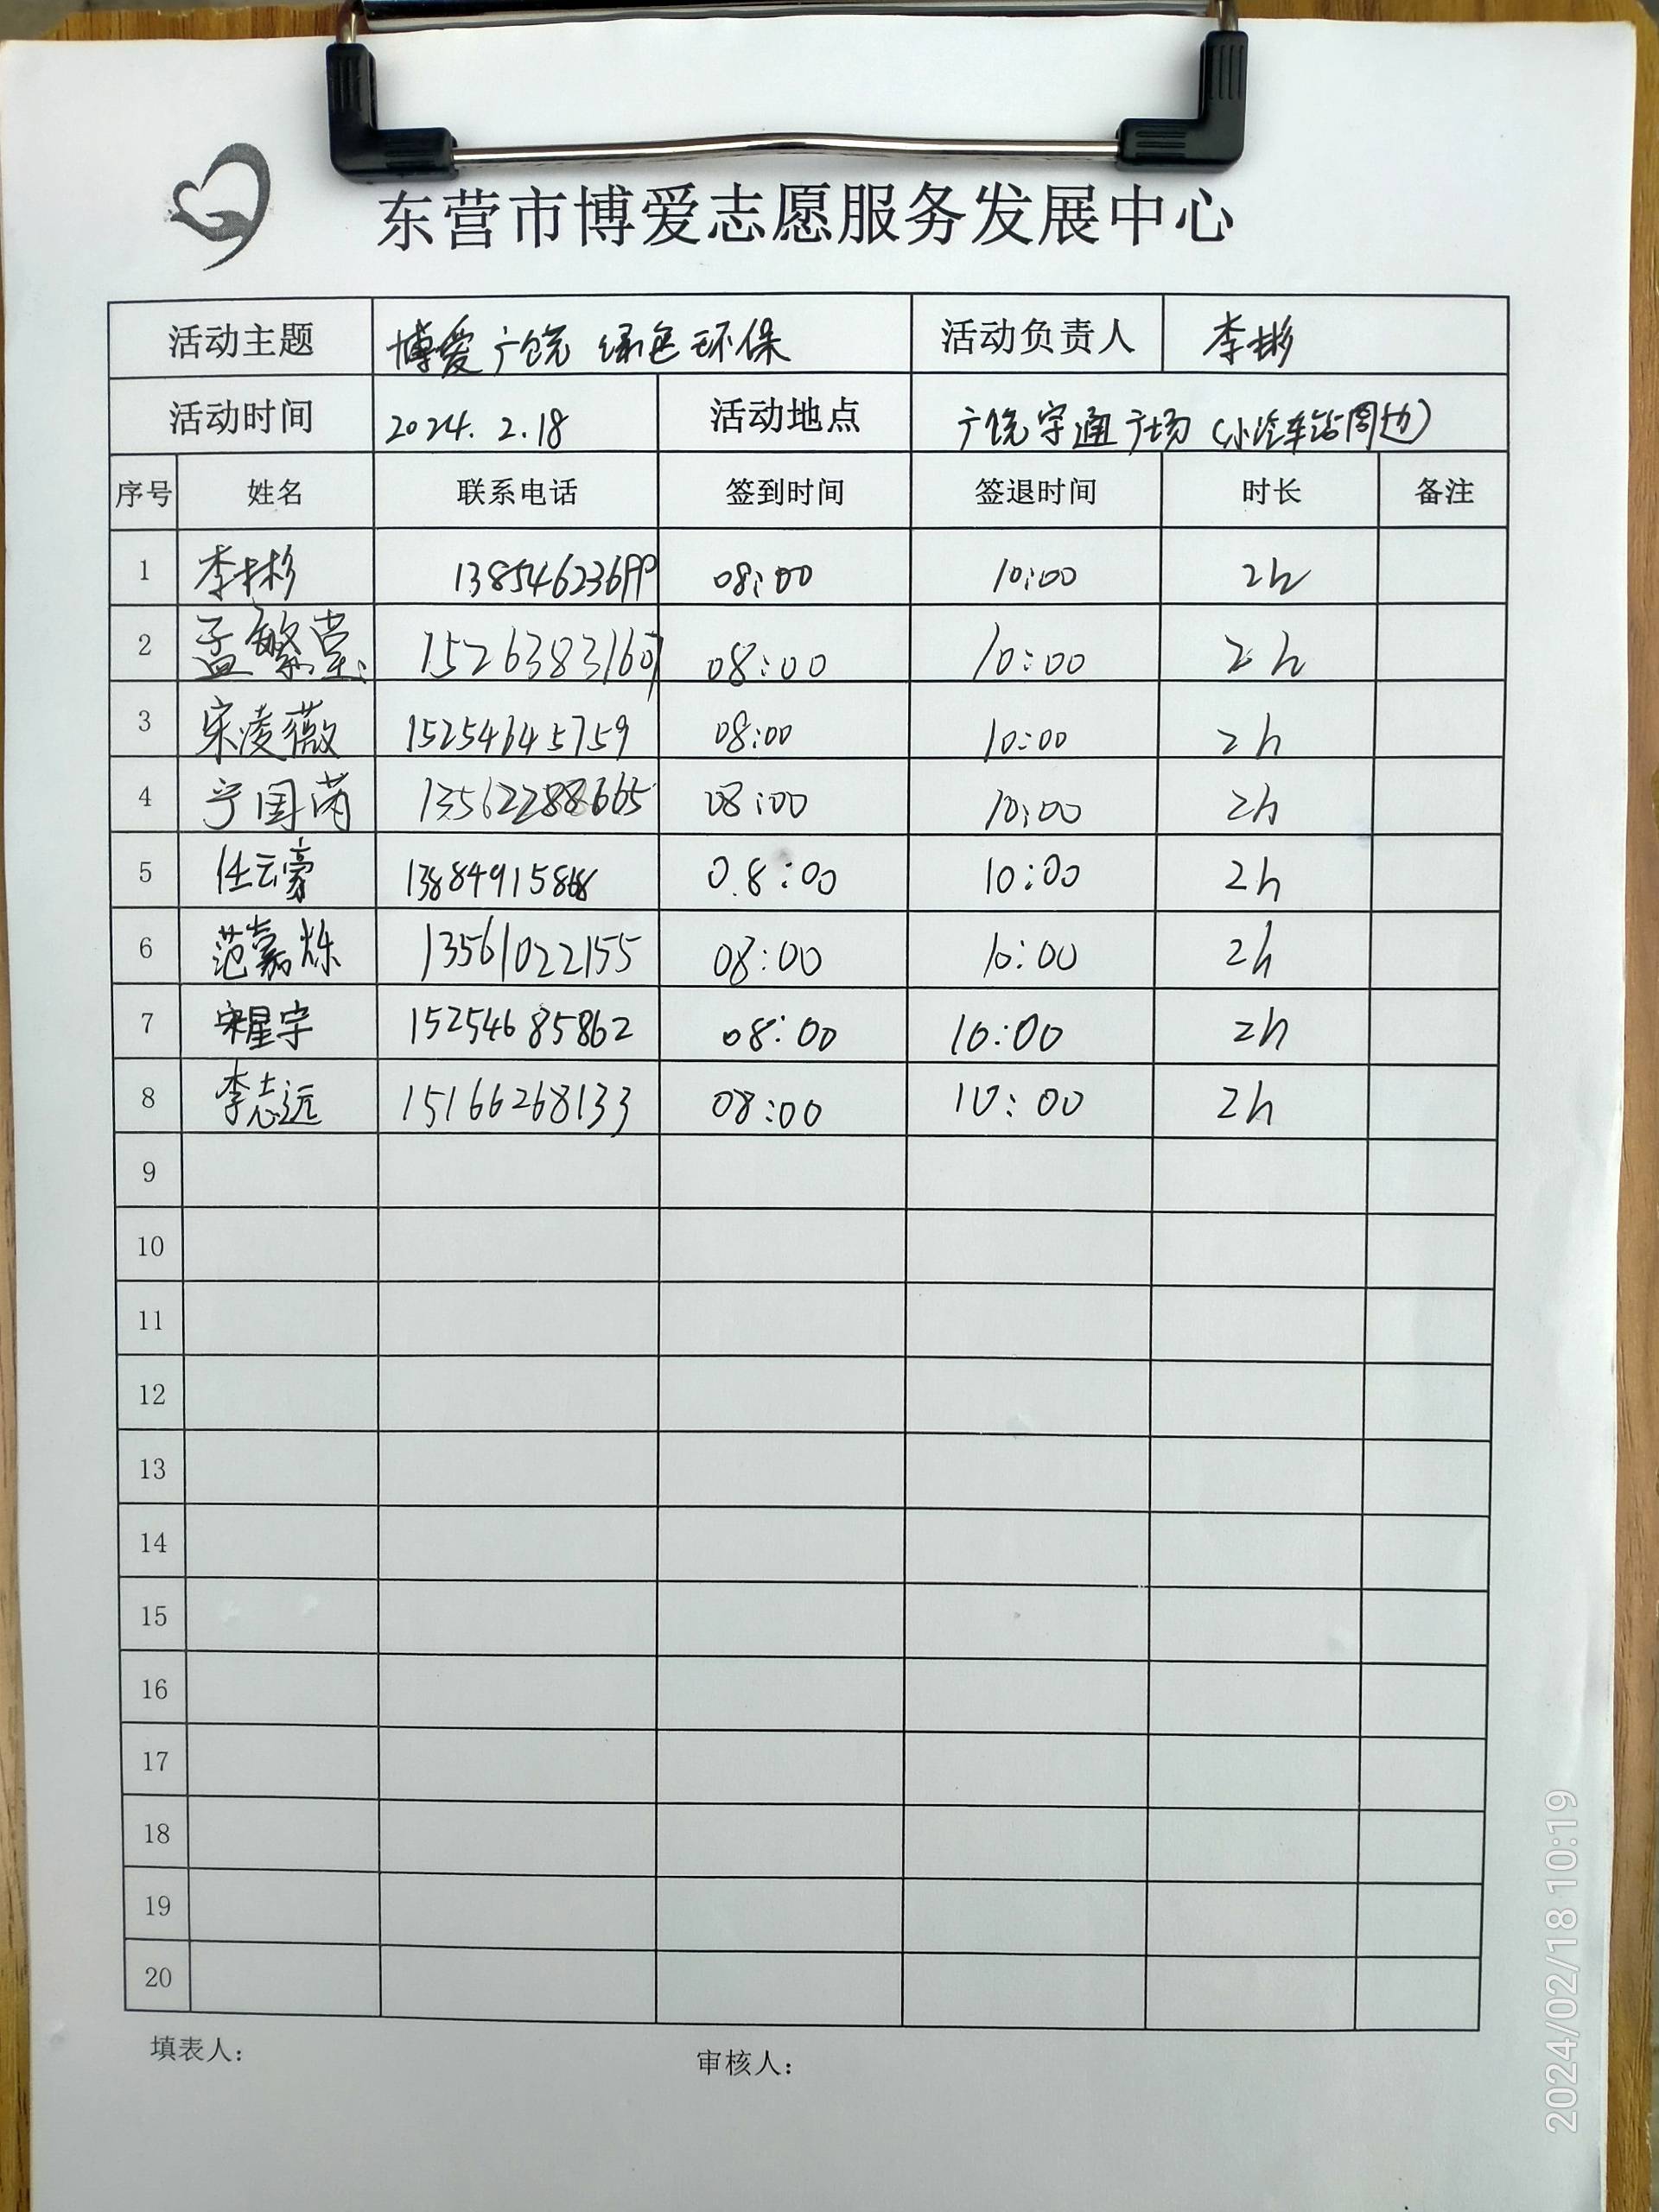 东营市博爱志愿服务发展中心
活动主题 博爱广饶 绿色环保 活动负责人 李彬
活动时间 2024. 2. 18 活动地点 广饶宇通广场（小汽车站周边）
序号 姓名 联系电话 签到时间 签退时间 时长 备注
1 李彬 13854623699 08:00 10:00 2h
2 孟繁堂 15263831607 08:00 10:00 2h
3 宋凌薇 15254645759 08:00 10:00 2h
4 宁国芮 13562288665 08:00 10:00 2h
5 任云豪 08:00 10:00 2h
6 范嘉烁 13561022155 08:00 10:00 2h
7 宋星宇 15254685862 08:00 10:00 2h
8 李志远 15166268133 08:00 10:00 2h
9
10
11
12
13
14
15
16
17
18
19
20
填表人： 审核人：
2024/02/18 10:19